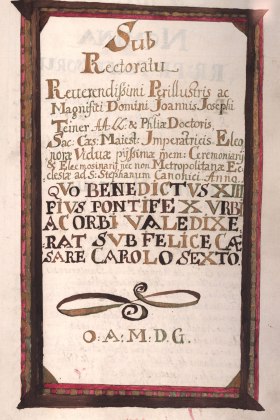 Sub
Rectoratu
Reverendissimi Perillustris ac
Magnifici Domini Joannis Josephi
Teiner AA LL & Phliæ Doctoris,
Sac: Cæs: Maiest: Imperatricis, Eleo
nora Viduæ pijssimæ mem: Ceremoniarij
& Elecmosinarij nec non Metropolitanæ Ec
clesiæ ad S: Stephanum Canonici Anno
QUO BENEDICTUS XIII
PIUS PONTIFEX URBI
AC ORBI VALEDIXE
RAT SUB FELICE CÆ
SARE CAROLO SEXTO.
O: A: M: D: G: